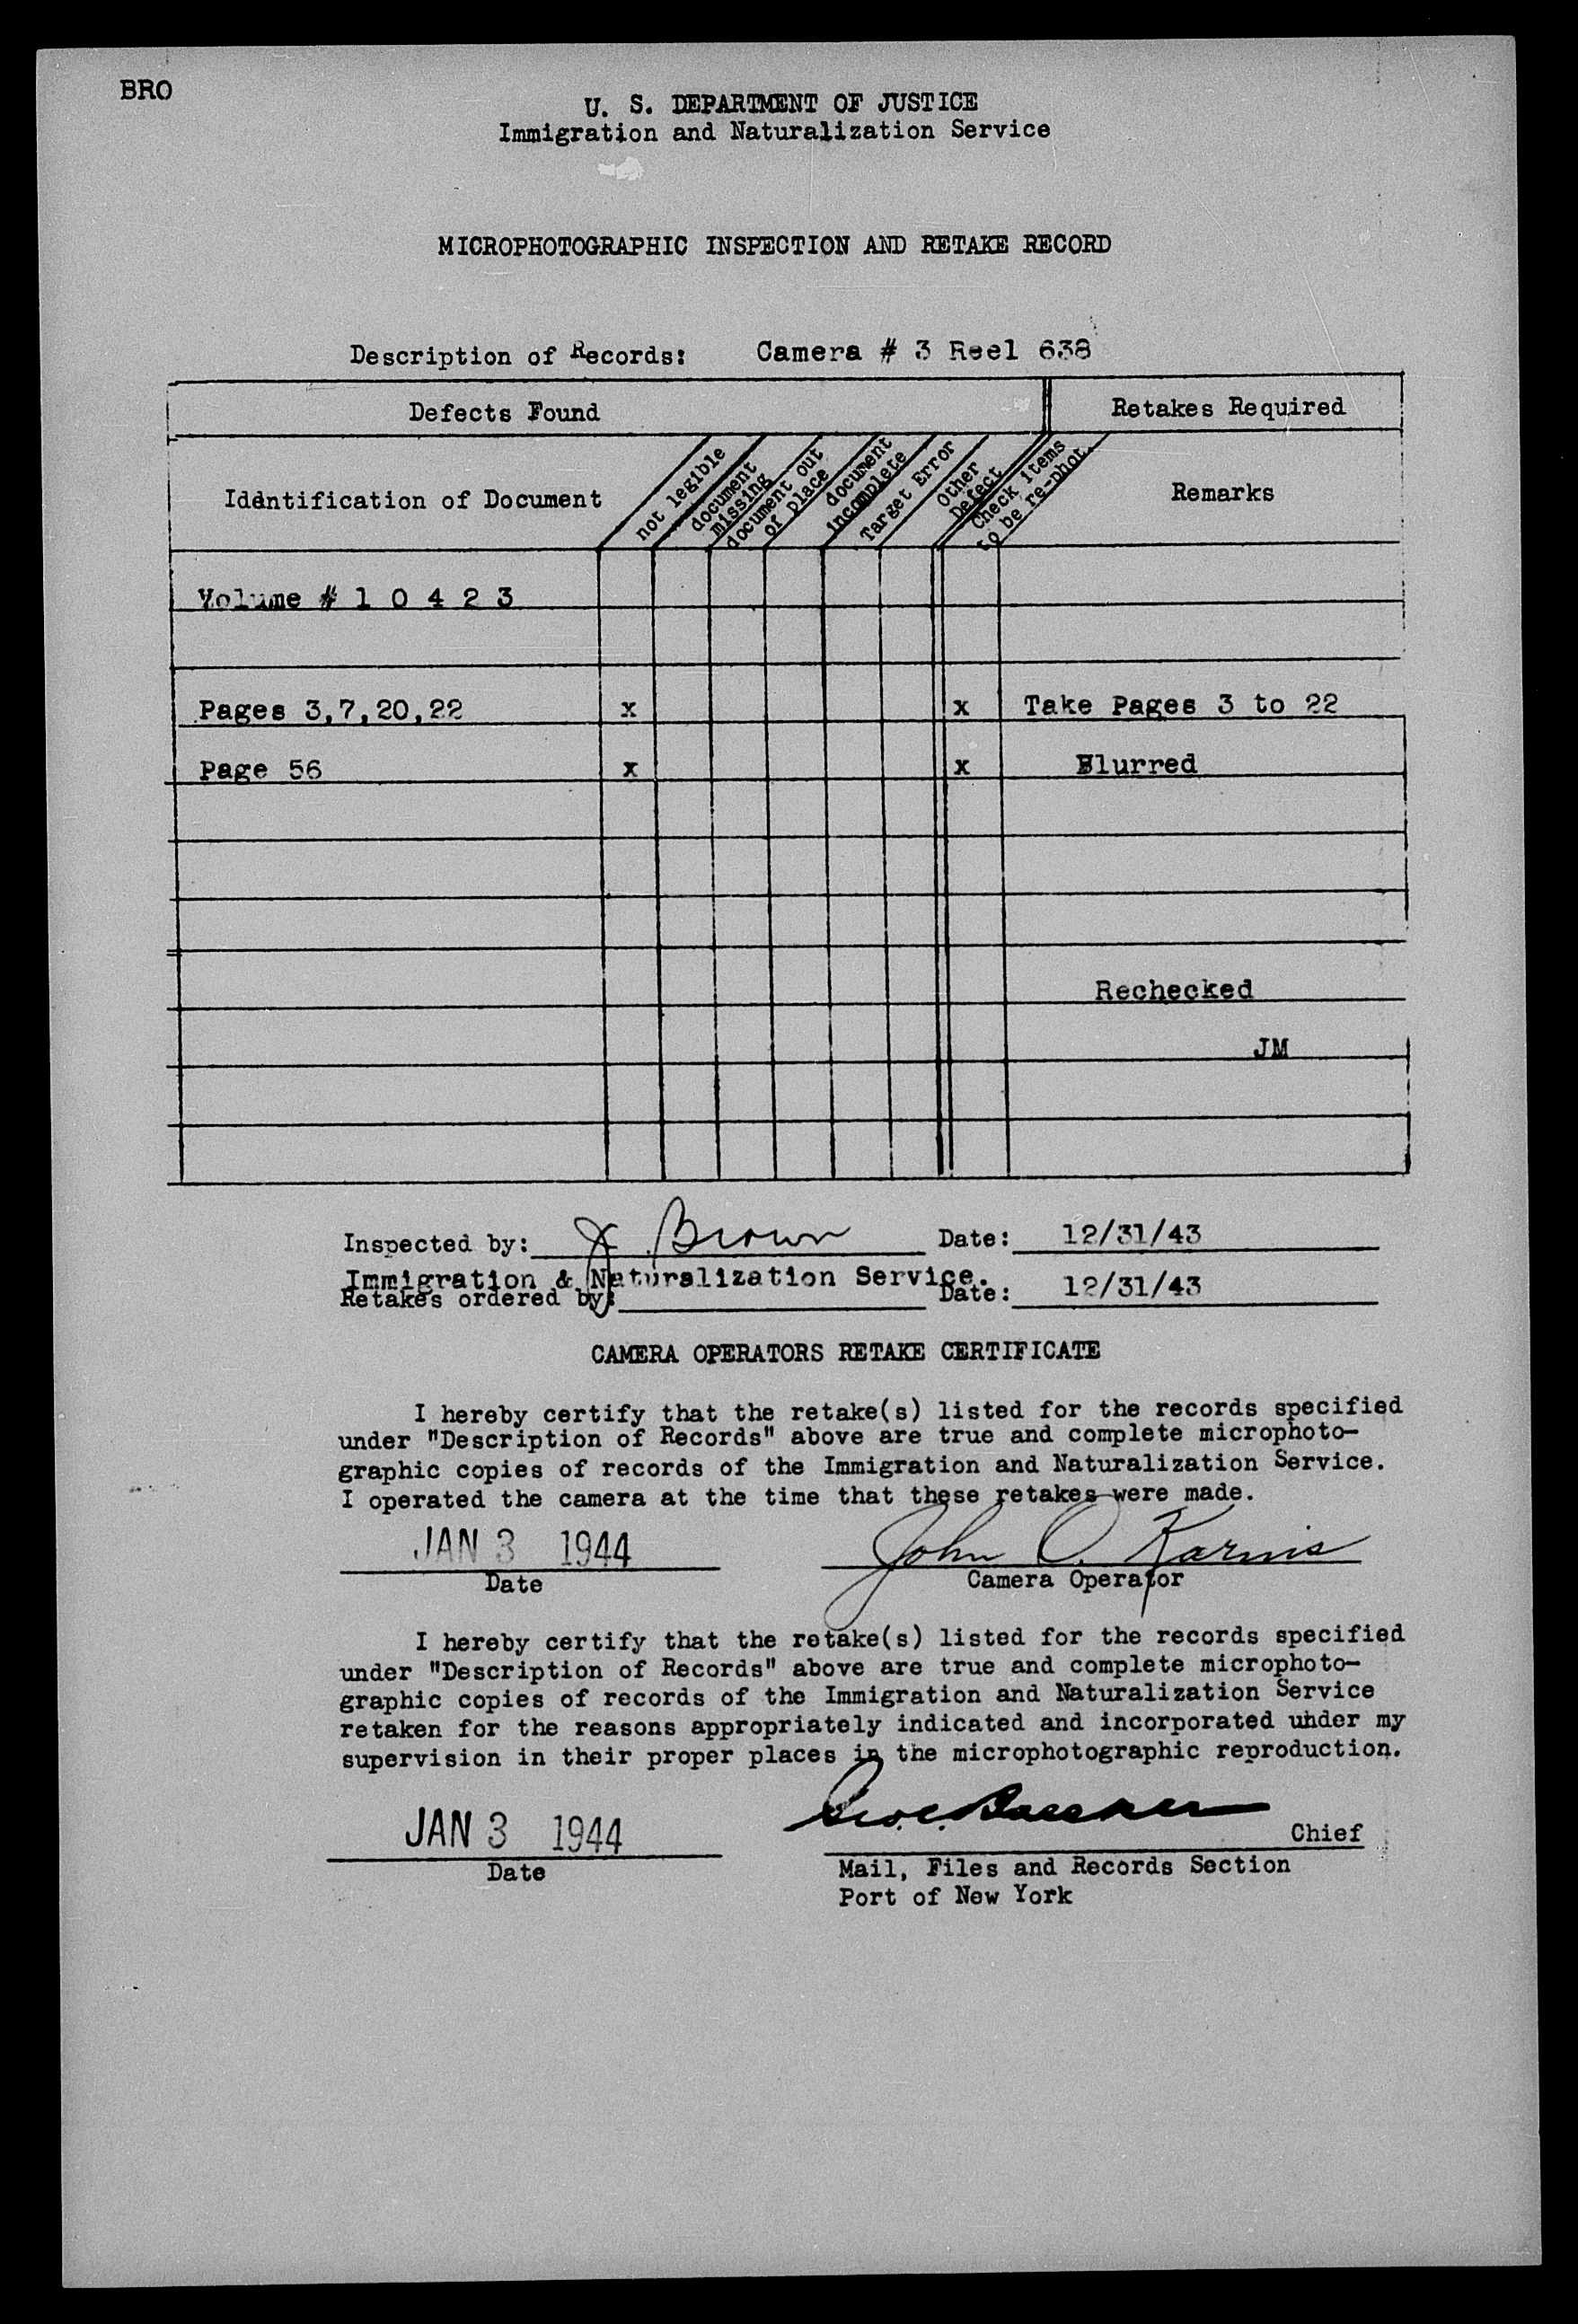 BRO
U. S. DEPARTMENT OF JUSTICE
Immigration and Naturalization Service
MICROPHOTOGRAPHIC INSPECTION AND RETAKE RECORD
Description of Records: Camera # 3 Reel 638
Defects Found Retakes Required
Identification of Document
not legible
document missing
document out of place
document incomplete
Target Error
Other Defect
Check items to be re-phot.
Remarks
Volume # 1 0 4 2 3
Pages 3,7,20,22 x x Take Pages 3 to 22
Page 56 x x Blurred
Rechecked
JM
Inspected by: J Brown Date: 12/31/43
Immigration & Naturalization Service.
Retakes ordered by: Date: 12/31/43
CAMERA OPERATORS RETAKE CERTIFICATE
I hereby certify that the retake(s) listed for the records specified
under "Description of Records" above are true and complete microphoto-
graphic copies of records of the Immigration and Naturalization Service.
I operated the camera at the time that these retakes were made.
JAN 3 1944 John O. Karnis
Date Camera Operator
I hereby certify that the retake(s) listed for the records specified
under "Description of Records" above are true and complete microphoto-
graphic copies of records of the Immigration and Naturalization Service
retaken for the reasons appropriately indicated and incorporated under my
supervision in their proper places in the microphotographic reproduction.
JAN 3 1944 Chief
Date Mail, Files and Records Section
Port of New York